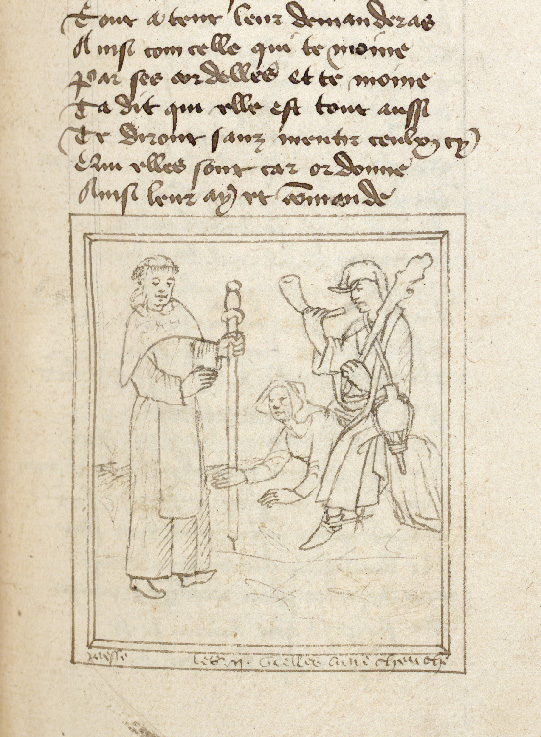 Tout a tenir leur demanderas
Ainsi com celle qui te moine
Par ses cordelles et te moine
Ta dit qui elle est tout aussi
Te diront sanz mentir ceulx cy
Qui elles sont car ordonne
Ainsi leur ay et commande